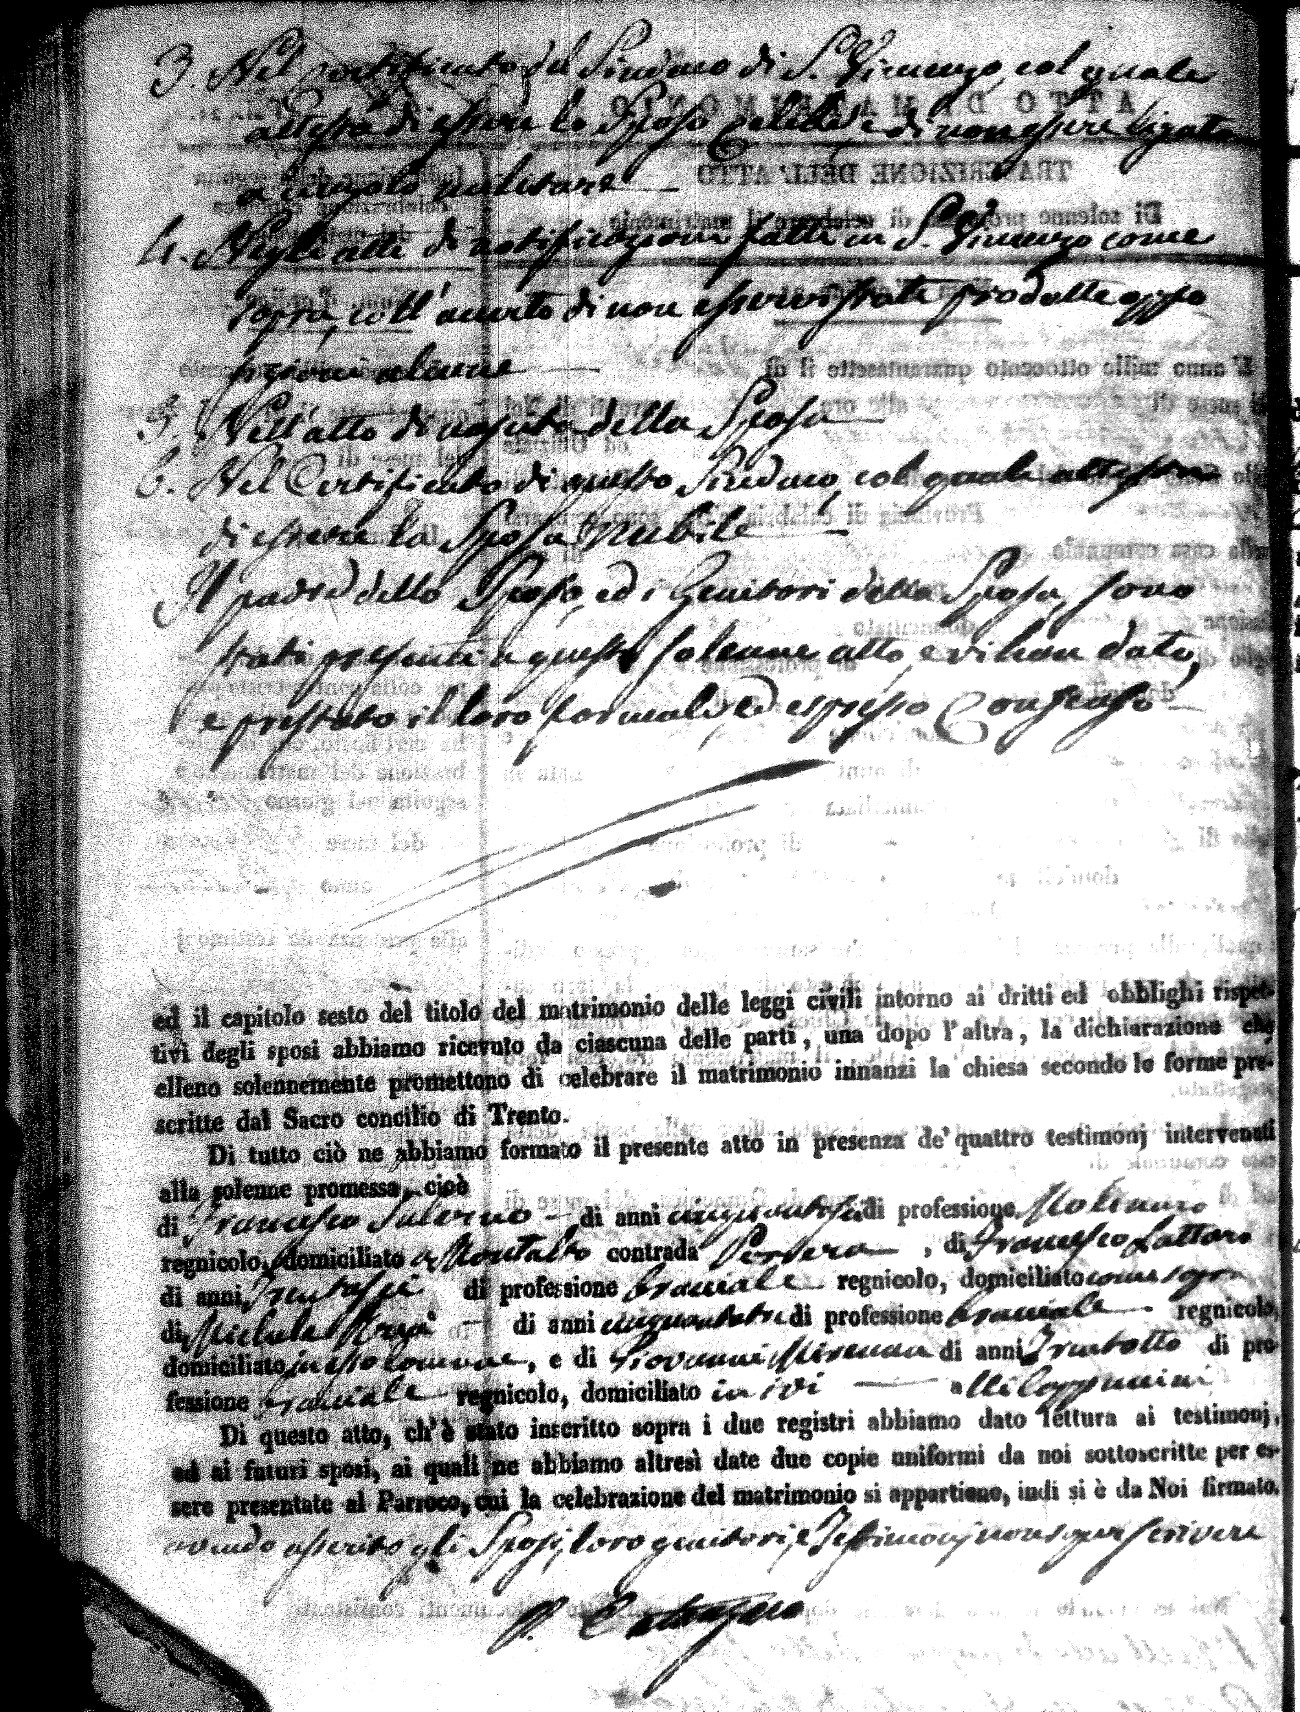 3. Nel certificato del Sindaco di S. Vincenzo, col quale
attesta di essere lo Sposo Celibe, e di non essere ligato
a cingolo militare
4. Negli atti di notificazioni fatte in S. Vincenzo come
sopra, coll'acerto di non esservi state prodotte oppo
sizioni alcune
5. Nell'atto di nascita della Sposa
6. Nel Certificato di questo Sindaco, col quale attesta
di essere la Sposa Nubile
Il padre dello Sposo, ed i Genitori della Sposa, sono
stati presenti a questo solenne atto, e vi han dato,
e prestato il loro formale, ed espresso Consenso
ed il capitolo sesto del titolo del matrimonio delle leggi civili intorno ai dritti ed obblighi rispet-
tivi degli sposi abbiamo ricevuto da ciascuna delle parti, una dopo l'altra, la dichiarazione che
elleno solennemente promettono di celebrare il matrimonio innanzi la chiesa secondo le forme pre-
scritte dal Sacro concilio di Trento.
Di tutto ciò ne abbiamo formato il presente atto in presenza de' quattro testimonj intervenuti
alla solenne promessa, cioè
di Francesco Salerno di anni cinquantasei di professione Molinaro
regnicolo, domiciliato a Montalto contrada, di Francesco Lattaro
di anni Trentasei di professione braciale regnicolo, domiciliato come sopra
di Michele di anni cinquantatre di professione braciale regnicolo,
domiciliato in esso comune, e di Giovanni di anni Trentotto di pro-
fessione braciale regnicolo, domiciliato in ivi
Di questo atto, ch'è stato inscritto sopra i due registri abbiamo dato lettura ai testimonj,
ed ai futuri sposi, ai quali ne abbiamo altresì date due copie uniformi da noi sottoscritte per es-
sere presentate al Parroco, cui la celebrazione del matrimonio si appartiene, indi si è da Noi firmato,
avendo asserito gli Sposi, loro genitori, e Testimonj non saper scrivere